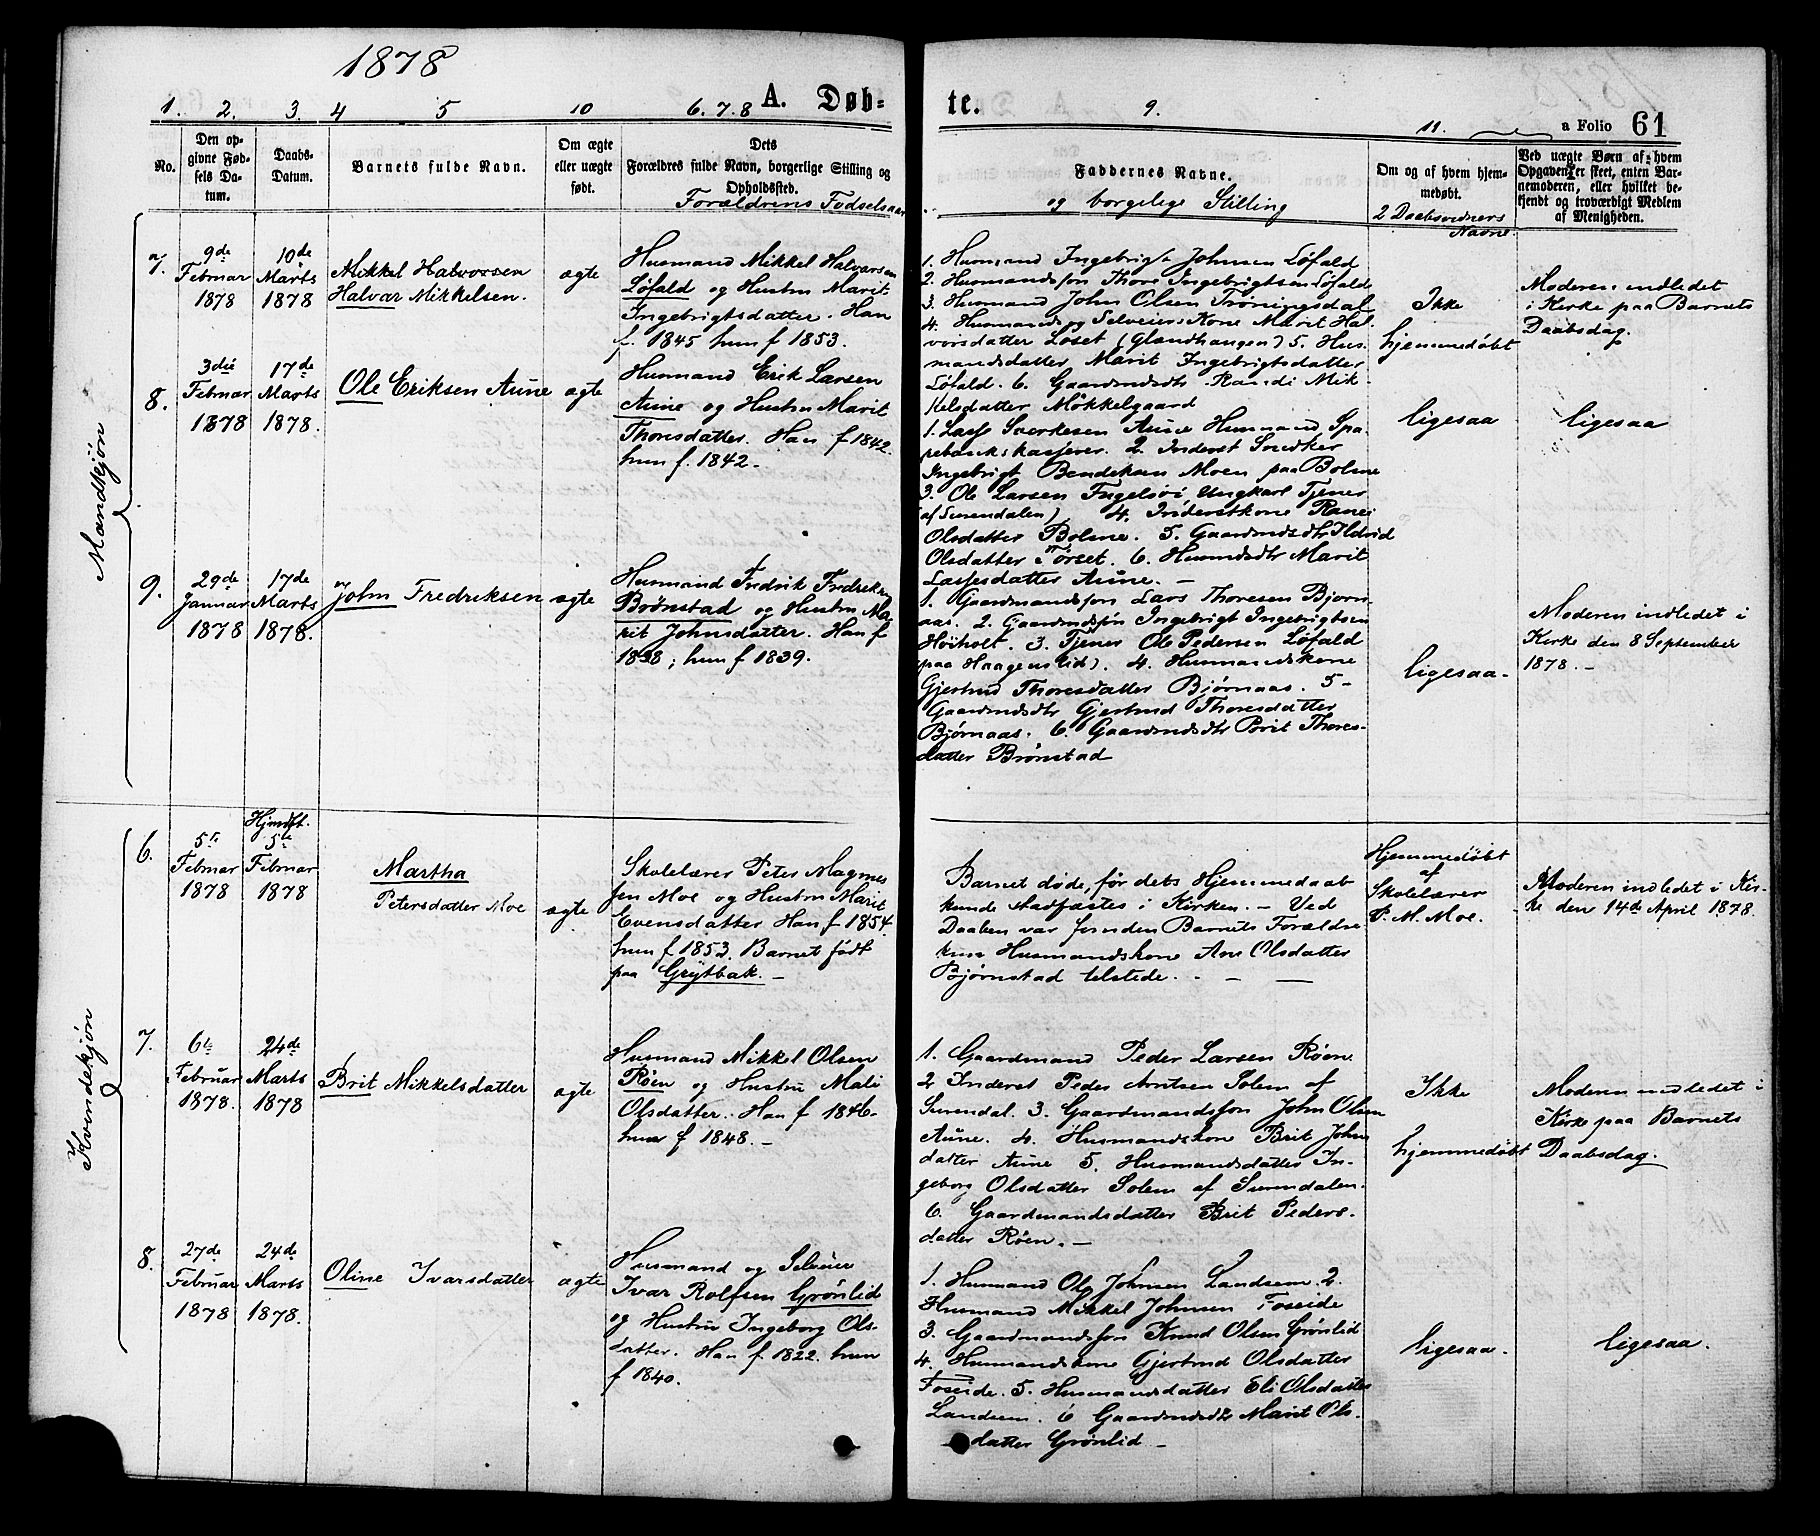 1878
1. 2. 3. 4 5 10 6. 7. 8 A. Døb-
No.
Den op-
givne Fød-
sels Da-
tum.
Daabs-
Datum.
Barnets fulde Navn.
Om ægte
eller uægte
født.
Dets
Forældres fulde Navn, borgerlige Stilling og
Opholdssted.
Forældrenes Fødselsaar
Mandkjøn
7.
9de
Februar
1878
10de
Marts
1878
Mikkel Halvorsen
Halvar Mikkelsen.
ægte
Husmand Mikkel Halvorsen
Løfald og Hustru Marit
Ingebrigtsdatter. Han
f. 1845 hun f 1853.
8.
3die
Februar
1878
17de
Marts
1878.
Ole Eriksen Aune
ægte
Husmand Erik Larsen
Aune og Hustru Marit
Thoresdatter. Han f 1842.
hun f. 1842.-
9.
29de
Januar
1878
17de
Marts
1878.
John Fredriksen
ægte
Husmand Fredrik Fredriksen
Brønstad og Hustru Ma-
rit Johnsdatter. Han f
1838; hun f 1839.
Kvindekjøn
6.
5te
Februar
1878
Hjemdbt.
5te
Februar
1878
Martha
Petersdatter Moe
ægte
Skolelærer Peter Magnes
sen Moe og Hustru Marit
Evensdatter Han f 1854.
hun f 1853. Barnet født
paa Grytbak.-
7.
6te
Februar
1878.
24de
Marts
1878
Brit Mikkelsdatter
ægte
Husmand Mikkel Olsen
Røen og Hustru Mali
Olsdatter. Han f 1846-
hun f 1848.-
8.
27de
Februar
1878
24de
Marts
1878.
Oline Ivarsdatter
ægte
Husmand og Selveier
Ivar Rolfsen Grønlid
og Hustru Ingeborg Ols-
datter. Han f. 1822. hun
f 1840.
te. 9. 11. a Folio 61
Faddernes Navne.
og borgelige Stilling
Om og af hvem hjem-
medøbt.
2 Daabsvidners
Navne.
Ved uægte Børn af hvem
Opgaven er skeet, enten Bar-
nemoderen, eller hvilket be-
kjendt og troværdigt Medlem
af Menigheden.
1. Husmand Ingebrigt Johnsen Løfald
2. Husmandssøn Thore Ingebrigtsen Løfald
3. Husmand John Olsen Trøningsdal
4. Husmands og Selveiers Kone Marit Hal-
vorsdatter Løset (Glandhaugen) 5. Hus-
mandsdatter Marit Ingebrigtsdatter
Løfald. 6. Gaardmdsdtr Randi Mik-
kelsdatter Møkkelgaard
Ikke
hjemmedøbt
Moderen indledet
i Kirke paa Barnets
Daabsdag.
1. Lasse Sverkesen Aune Husmand Spa-
rebankskasserer. 2. Inderst Snedker
Ingebrigt Bendeksen Moen paa Bolme
3. Ole Larsen Ungkarl Tjener
(af Surendalen) 4. Inderstkone Ranei
Olsdatter Bolme. 5. Gaardmdsdtr Ildrid
Olsdatter Tørset. 6. Husmdsdtr Marit
Lassesdatter Aune.-
ligesaa
ligesaa
1. Gaardmandssøn Lars Thoresen Bjørn-
aas. 2. Gaardmdssøn Ingebrigt Ingebrigtsen
Høiholt. 3. Tjener Ole Pedersen Løfald
(paa Haagenslid). 4. Husmandskone
Gjertrud Thoresdatter Bjørnaas. 5-
Gaardmdsdtr Gjertrud Thoresdatter
Bjørnaas. 6. Gaardmdsdtr Brit Thores-
datter Brønstad
ligesaa-
Moderen indledet i
Kirke den 8 September
1878.-
Barnet døde, før dets Hjemmedaab
kunde stadfæstes i Kirken.- Ved
Daaben var foruden Barnets Forældre
kun Husmandskone Ane Olsdatter
Bjørnstad tilstede.
Hjemmedøbt
af
Skolelærer
P. M. Moe.
Moderen indledet i Kir-
ke den 14de April 1878.
1. Gaardmand Peder Larsen Røen
2 Inderst Peder Arntsen Solem af
Surendal. 3. Gaardmandssøn John Olsen
Aune. 4. Husmandskone Brit Johns
datter Aune 5. Husmandsdatter In-
geborg Olsdatter Solem af Surendalen.
6. Gaardmandsdatter Brit Peders-
datter Røen.-
Ikke
hjemmedøbt
Moderen indledet i
Kirke paa Barnets
Daabsdag.
1. Husmand Ole Johnsen Landsem. 2.
Husmand Mikkel Johnsen Foseide
3. Gaardmandssøn Knud Olsen Grønlid
4. Husmandskone Gjertrud Olsdatter
Foseide. 5. Husmandsdatter Eli Olsdatter
Landsem. 6 Gaardmdsdtr Marit Ols-
datter Grønlid-
ligesaa.
ligesaa.